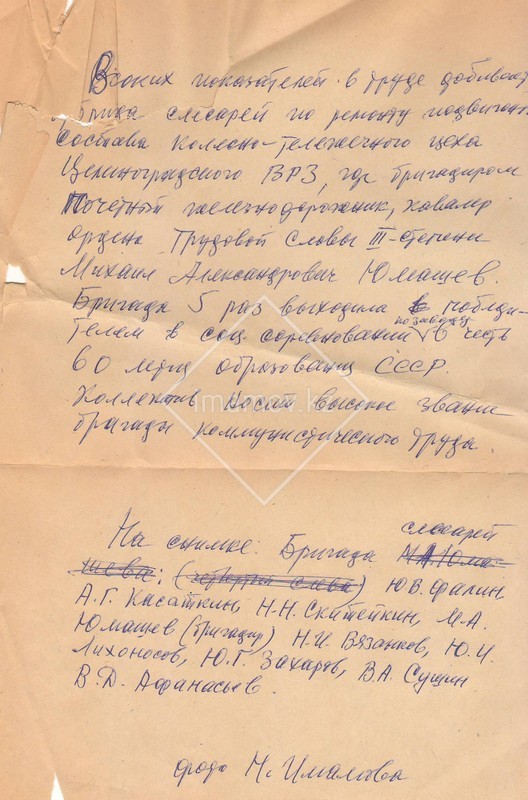 Высоких показателей в труде добивает
бригада слесарей по ремонту подвижного
состава колесно-тележечного цеха
Целиноградского ВРЗ, где бригадиром
Почетный железнодорожник, кавалер
ордена Трудовой Славы III-степени
Михаил Александрович Юмашев.
Бригада 5 раз выходила победи-
телем в соц. соревновании по заводу в честь
60 летия образования СССР.
Коллектив носит высокое звание
бригады коммунистического труда.
На снимке: Бригада слесарей М.А. Юма-
шева: (четвертый слева) Ю.В. Фалин
А.Г. Касаткин, Н.Н. Скитейкин, М.А.
Юмашев (бригадир), Н.И. Вязанков, Ю.И.
Лихоносов, Ю.Г. Захаров, В.А. Сущин
В.Д. Афанасьев.
фото М. Ималова
imanov.kz